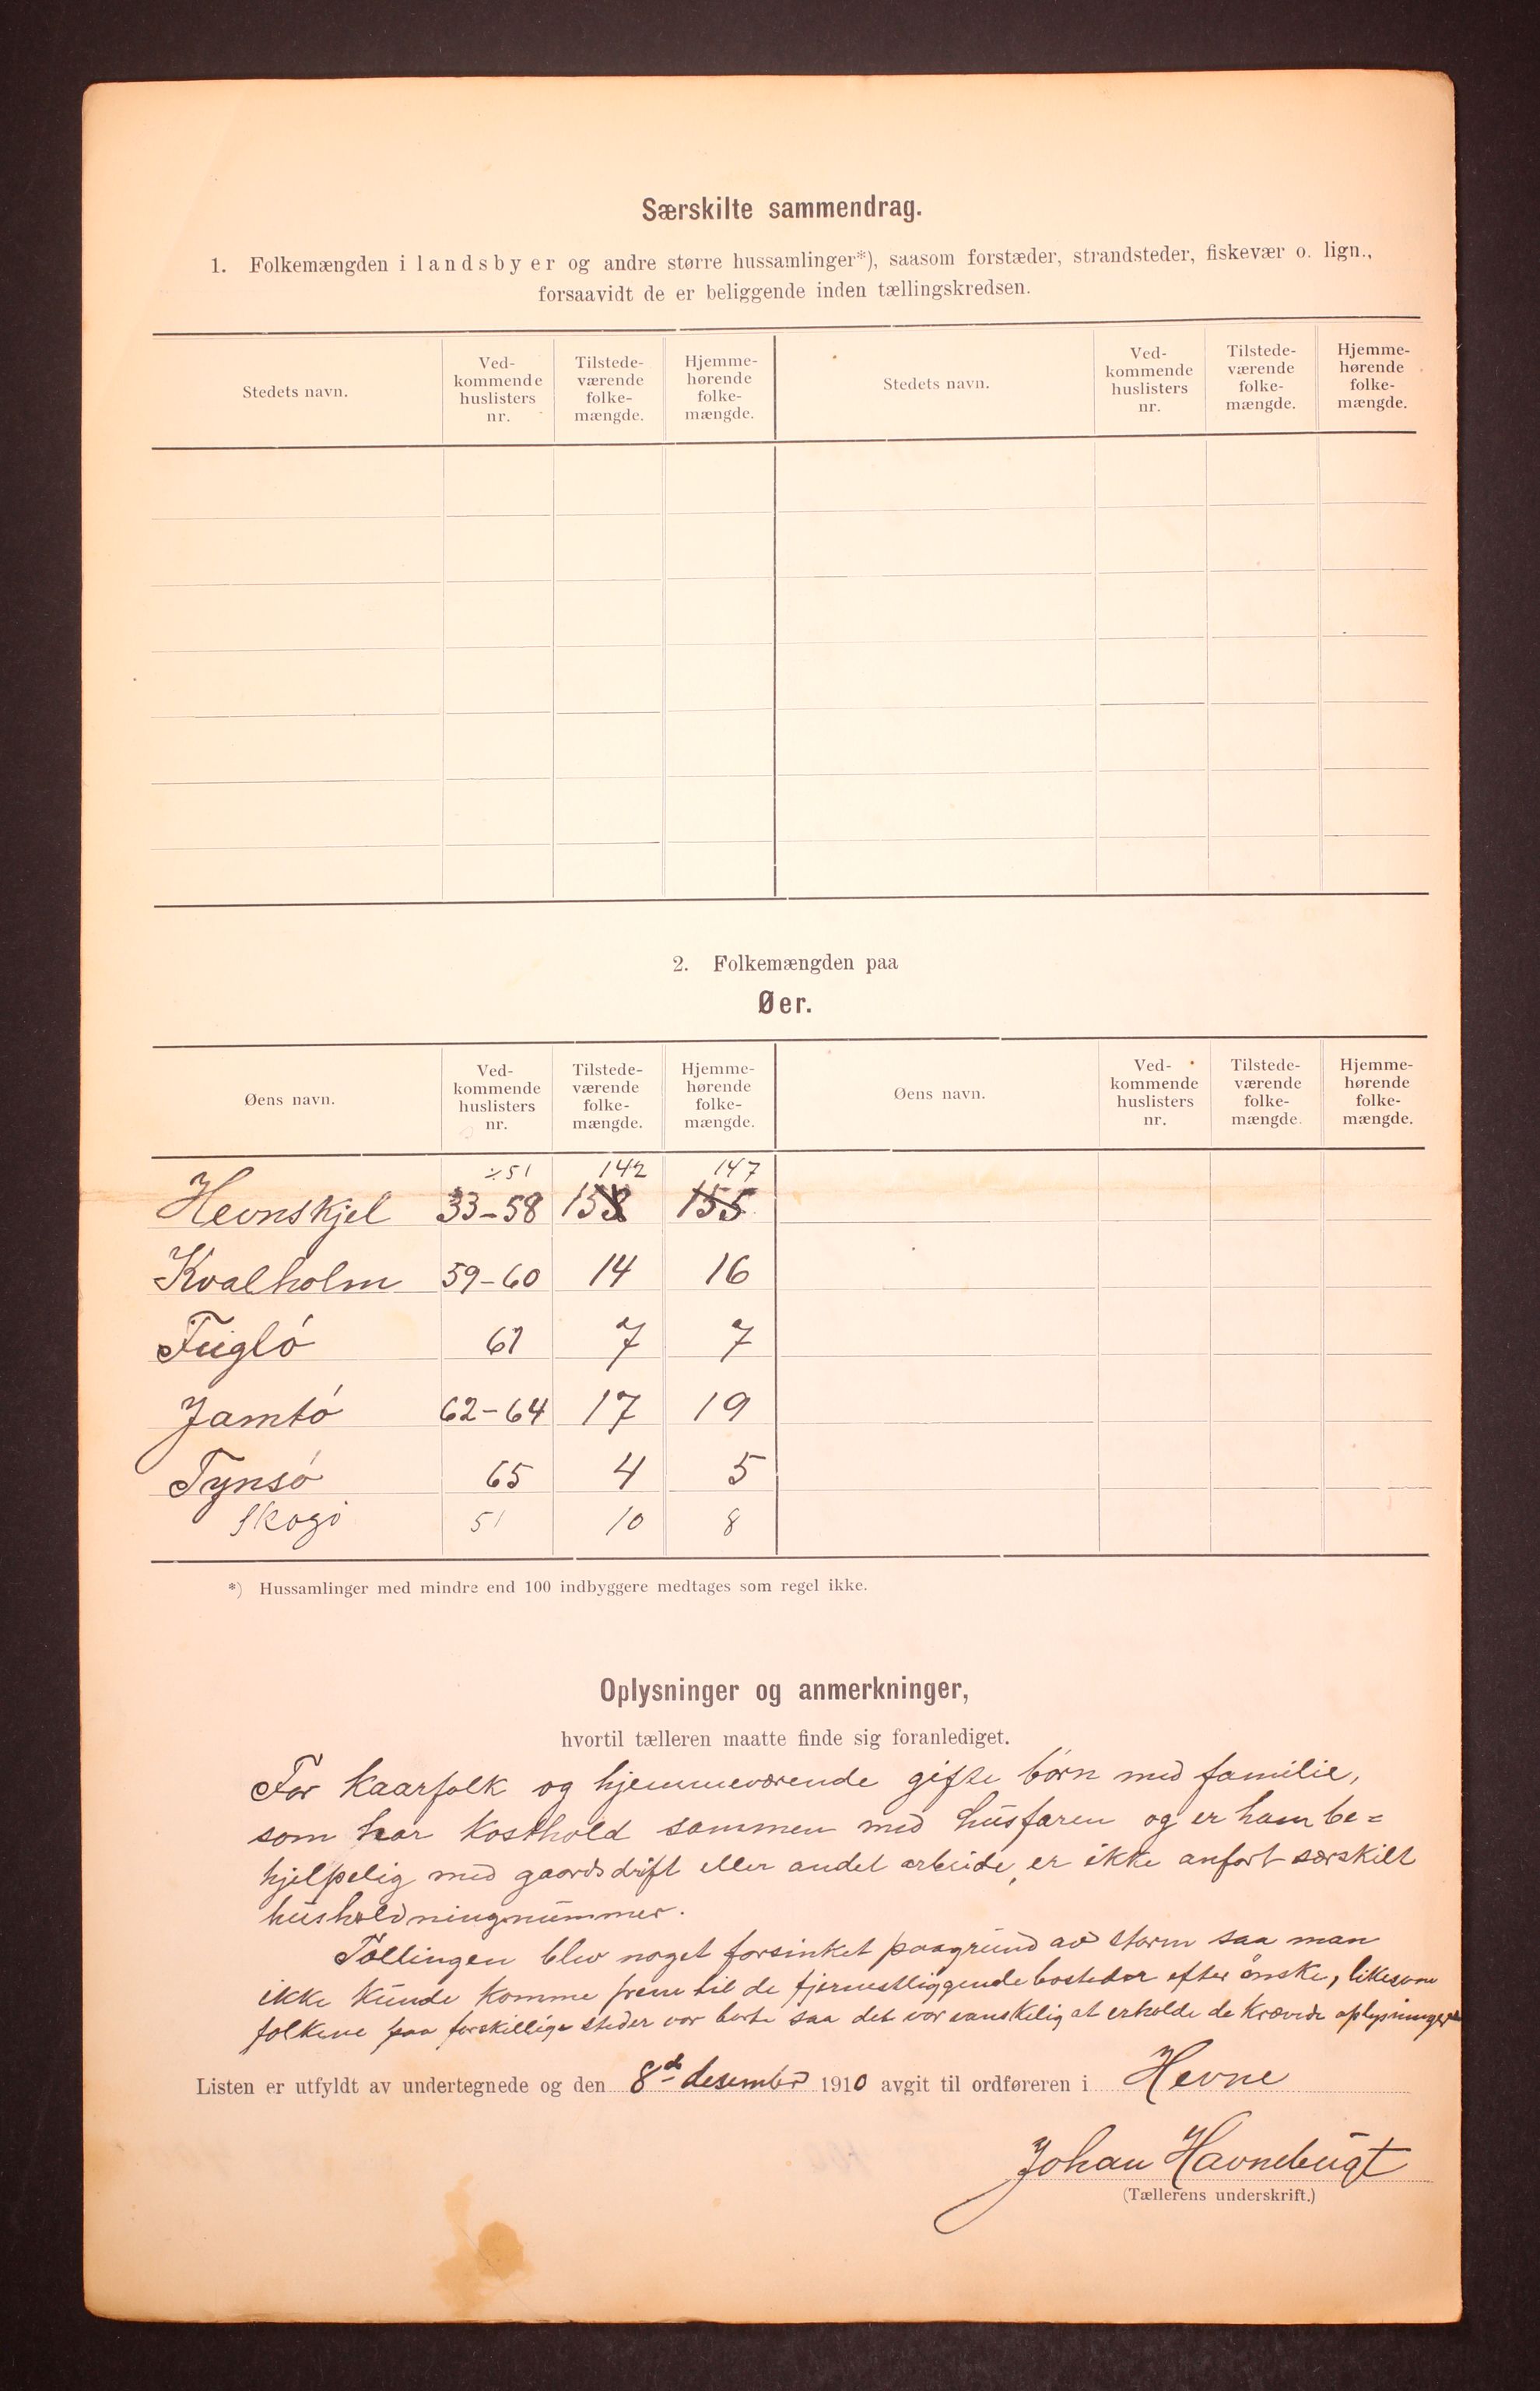 Særskilte sammendrag.
1. Folkemængden i landsbyer og andre større hussamlinger*), saasom forstæder, strandsteder, fiskevær o. lign.,
forsaavidt de er beliggende inden tællingskredsen.
Stedets navn. Ved-kommende huslisters nr. Tilstede-værende folke-mængde. Hjemme-hørende folke-mængde. Stedets navn. Ved-kommende huslisters nr. Tilstede-værende folke-mængde. Hjemme-hørende folke-mængde.
2. Folkemængden paa
Øer.
Øens navn. Ved-kommende huslisters nr. Tilstede-værende folke-mængde. Hjemme-hørende folke-mængde. Øens navn. Ved-kommende huslisters nr. Tilstede-værende folke-mængde. Hjemme-hørende folke-mængde.
÷51 142 147
Hevnskjel 33-58 153 155
Kvalholm 59-60 14 16
Fuglö 61 7 7
Jamtö 62-64 17 19
Tynsö 65 4 5
Skogö 51 10 8
*) Hussamlinger med mindre end 100 indbyggere medtages som regel ikke.
Oplysninger og anmerkninger,
hvortil tælleren maatte finde sig foranlediget.
For kaarfolk og hjemmeværende gifte börn med familie,
som har kosthold sammen med husfaren og er ham be=
hjelpelig med gaardsdrift eller andet arbeide, er ikke anfört særskilt
husholdningsnummer.
Tællingen blev noget forsinket paagrund av storm saa man
ikke kunde komme frem til de fjernestliggende bosteder efter önske, likesom
folkene paa forskillige steder var borte saa det var vanskelig at erholde de krævede oplysninger
Listen er utfyldt av undertegnede og den 8de desember 1910 avgit til ordføreren i Hevne
Johan Havnebugt
(Tællerens underskrift.)